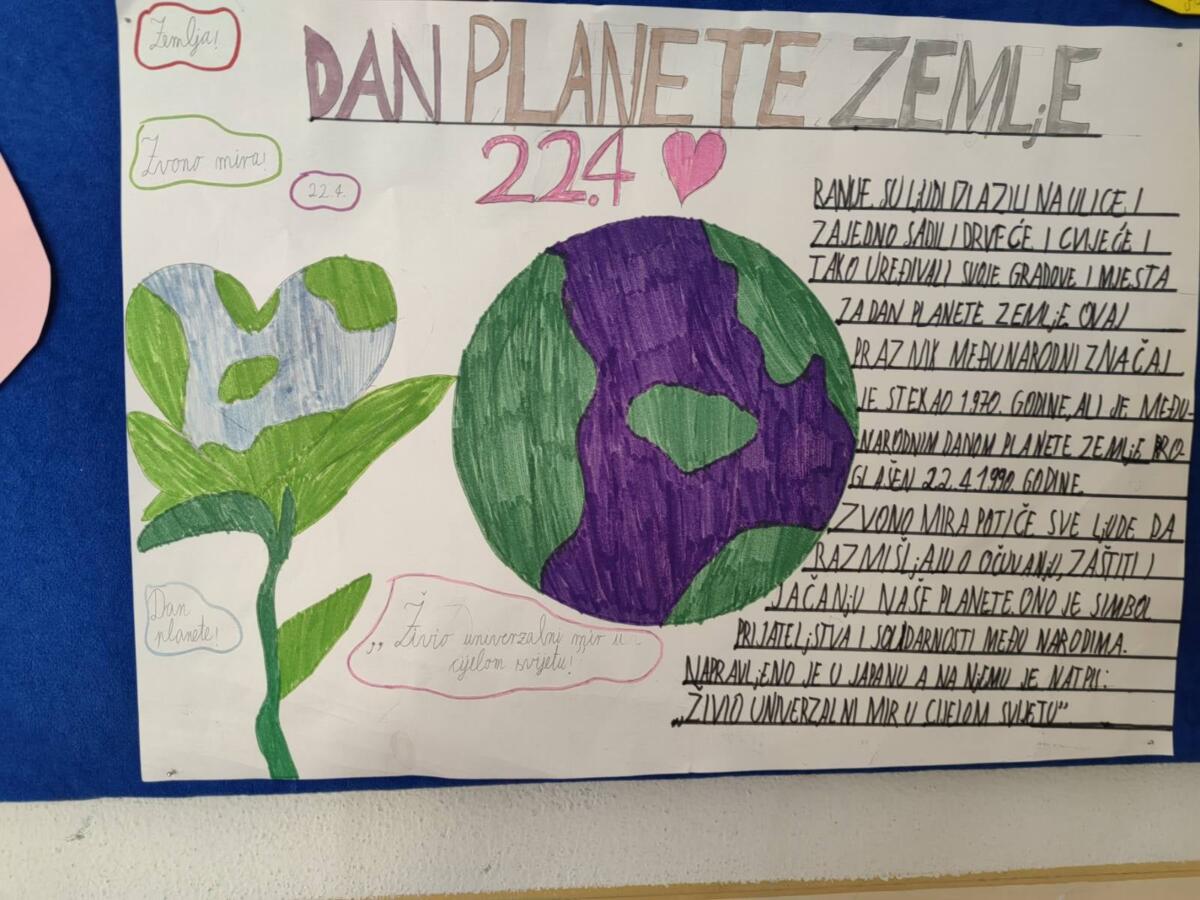 Zemlja!
DAN PLANETE ZEMLjE
Zvono mira!
22.4.
22.4
RANIJE SU LJUDI IZLAZILI NA ULICE I
ZAJEDNO SADILI DRVEĆE I CVIJEĆE I
TAKO UREĐIVALI SVOJE GRADOVE I MJESTA
ZA DAN PLANETE ZEMLjE. OVAJ
PRAZNIK MEĐUNARODNI ZNAČAJ
JE STEKAO 1970. GODINE, ALI JE MEĐU-
NARODNIM DANOM PLANETE ZEMLjE PRO-
GLAŠEN 22.4.1990. GODINE.
ZVONO MIRA POTIČE SVE LjUDE DA
RAZMIŠLjAJU O OČUVANjU, ZAŠTITI I
JAČANjU NAŠE PLANETE. ONO JE SIMBOL
PRIJATELjSTVA I SOLIDARNOSTI MEĐU NARODIMA.
NAPRAVLjENO JE U JAPANU A NA NjEMU JE NATPIS:
„ŽIVIO UNIVERZALNI MIR U CIJELOM SVIJETU"
Dan
planete!
„Živio univerzalni mir u
cijelom svijetu!